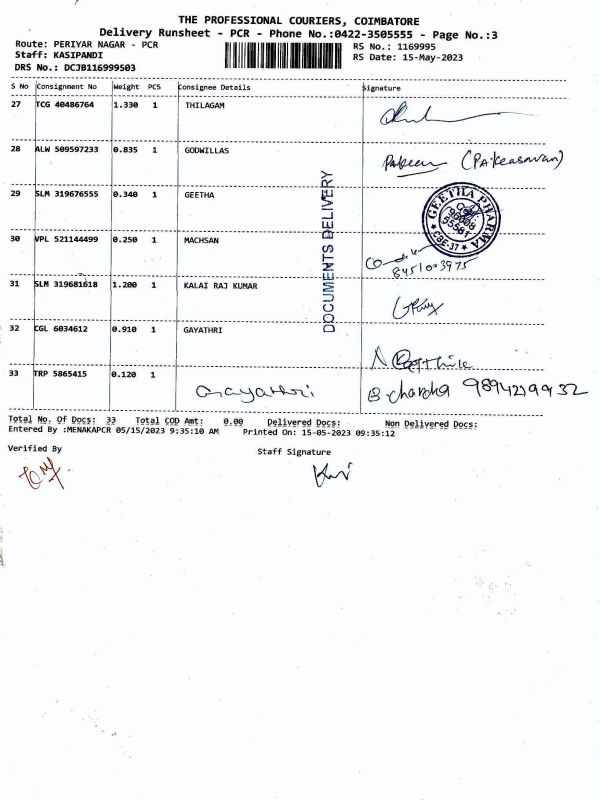 THE PROFESSIONAL COURIERS, COIMBATORE
Delivery Runsheet - PCR - Phone No.:0422-3505555 - Page No.:3
Route: PERIYAR NAGAR - PCR RS No.: 1169995
Staff: KASIPANDI RS Date: 15-May-2023
DRS No.: DCJB116999503
S No Consignment No Weight PCS Consignee Details Signature
27 TCG 40486764 1.330 1 THILAGAM
28 ALW 509597233 0.835 1 GODWILLAS
29 SLM 319676555 0.340 1 GEETHA
GEETHA PHARMA
CBE-37
30 VPL 521144499 0.250 1 MACHSAN
8451003975
31 SLM 319681618 1.200 1 KALAI RAJ KUMAR
32 CGL 6034612 0.910 1 GAYATHRI
33 TRP 5865415 0.120 1 Gayathri
DOCUMENTS DELIVERY
Total No. Of Docs: 33 Total COD Amt: 0.00 Delivered Docs: Non Delivered Docs:
Entered By :MENAKAPCR 05/15/2023 9:35:10 AM Printed On: 15-05-2023 09:35:12
Verified By Staff Signature